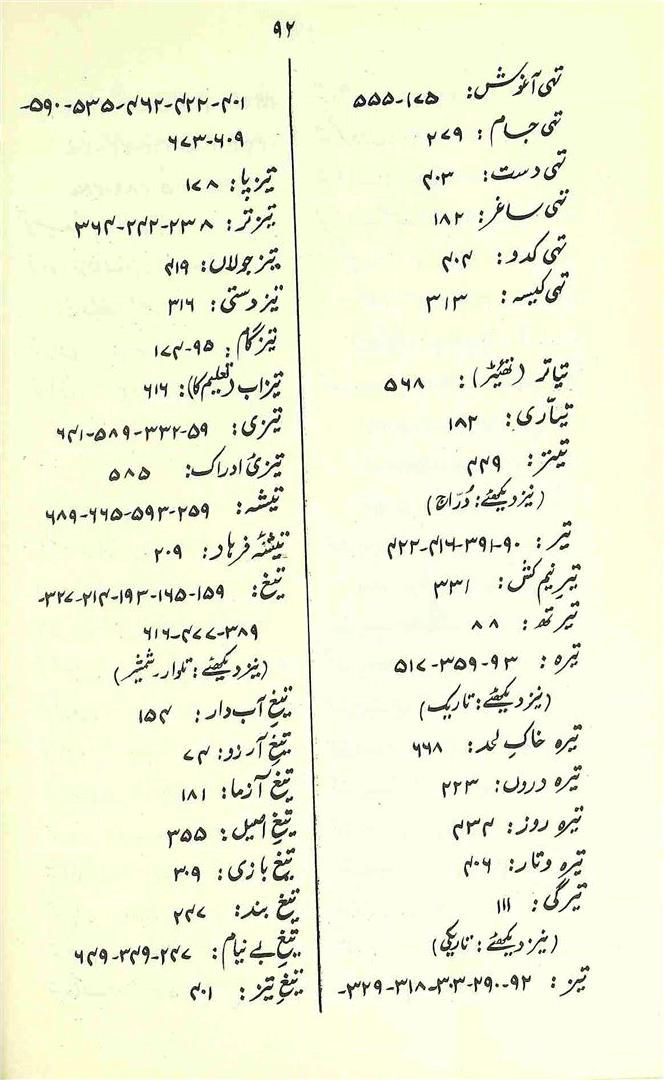 ۹۲
تہی آغوش: ۱۷۵-۵۵۵
تہی جام: ۲۷۹
تہی دست: ۴۰۳
تہی ساغر: ۱۸۲
تہی کدو: ۴۰۴
تہی کیسہ: ۳۱۳
تیاتر (تھیٹر): ۵۶۸
تیاّری: ۱۸۲
تیتر: ۴۴۹
(نیز دیکھئے: دُرّاج)
تیر: ۹۰-۳۹۱-۴۱۶-۴۲۲
تیرِ نیم کش: ۳۳۱
تیرتھ: ۸۸
تیرہ: ۹۳-۳۵۹-۵۱۷
(نیز دیکھئے: تاریک)
تیرہ خاکِ لحد: ۶۶۸
تیرہ دروں: ۲۲۳
تیرہ روز: ۴۳۴
تیرہ و تار: ۴۰۶
تیرگی: ۱۱۱
(نیز دیکھئے: تاریکی)
تیز: ۹۲-۲۹۰-۳۰۳-۳۱۸-۳۲۹-
۴۰۱-۴۲۲-۴۶۲-۵۳۵-۵۹۰-
۶۰۹-۶۷۳
تیزپا: ۱۷۸
تیزتر: ۲۳۸-۲۴۲-۳۶۴
تیز جولاں: ۴۱۹
تیز دستی: ۳۱۶
تیزگام: ۹۵-۱۷۴
تیزاب (تعلیم کا): ۶۱۶
تیزی: ۵۹-۳۳۲-۵۸۹-۶۴۱
تیزیٔ ادراک: ۵۸۵
تیشہ: ۲۵۹-۵۹۳-۶۶۵-۶۸۹
تیشۂ فرہاد: ۲۰۹
تیغ: ۱۵۹-۱۶۵-۱۹۳-۲۱۴-۳۲۷-
۳۸۹-۴۷۷-۶۱۶
(نیز دیکھئے: تلوار۔شمشیر)
تیغِ آب دار: ۱۵۴
تیغِ آرزو: ۷۴
تیغ آزما: ۱۸۱
تیغِ اصیل: ۳۵۵
تیغ بازی: ۳۰۹
تیغ بند: ۲۴۷
تیغِ بے نیام: ۲۴۷-۳۴۹-۶۴۹
تیغِ تیز: ۴۰۱